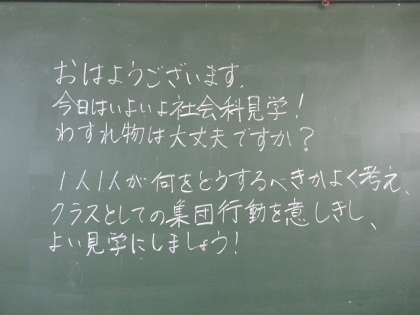 おはようございます.
今日はいよいよ社会科見学！
わすれ物は大丈夫ですか？
1人1人が何をどうするべきかよく考え、
クラスとしての集団行動を意しきし、
よい見学にしましょう！